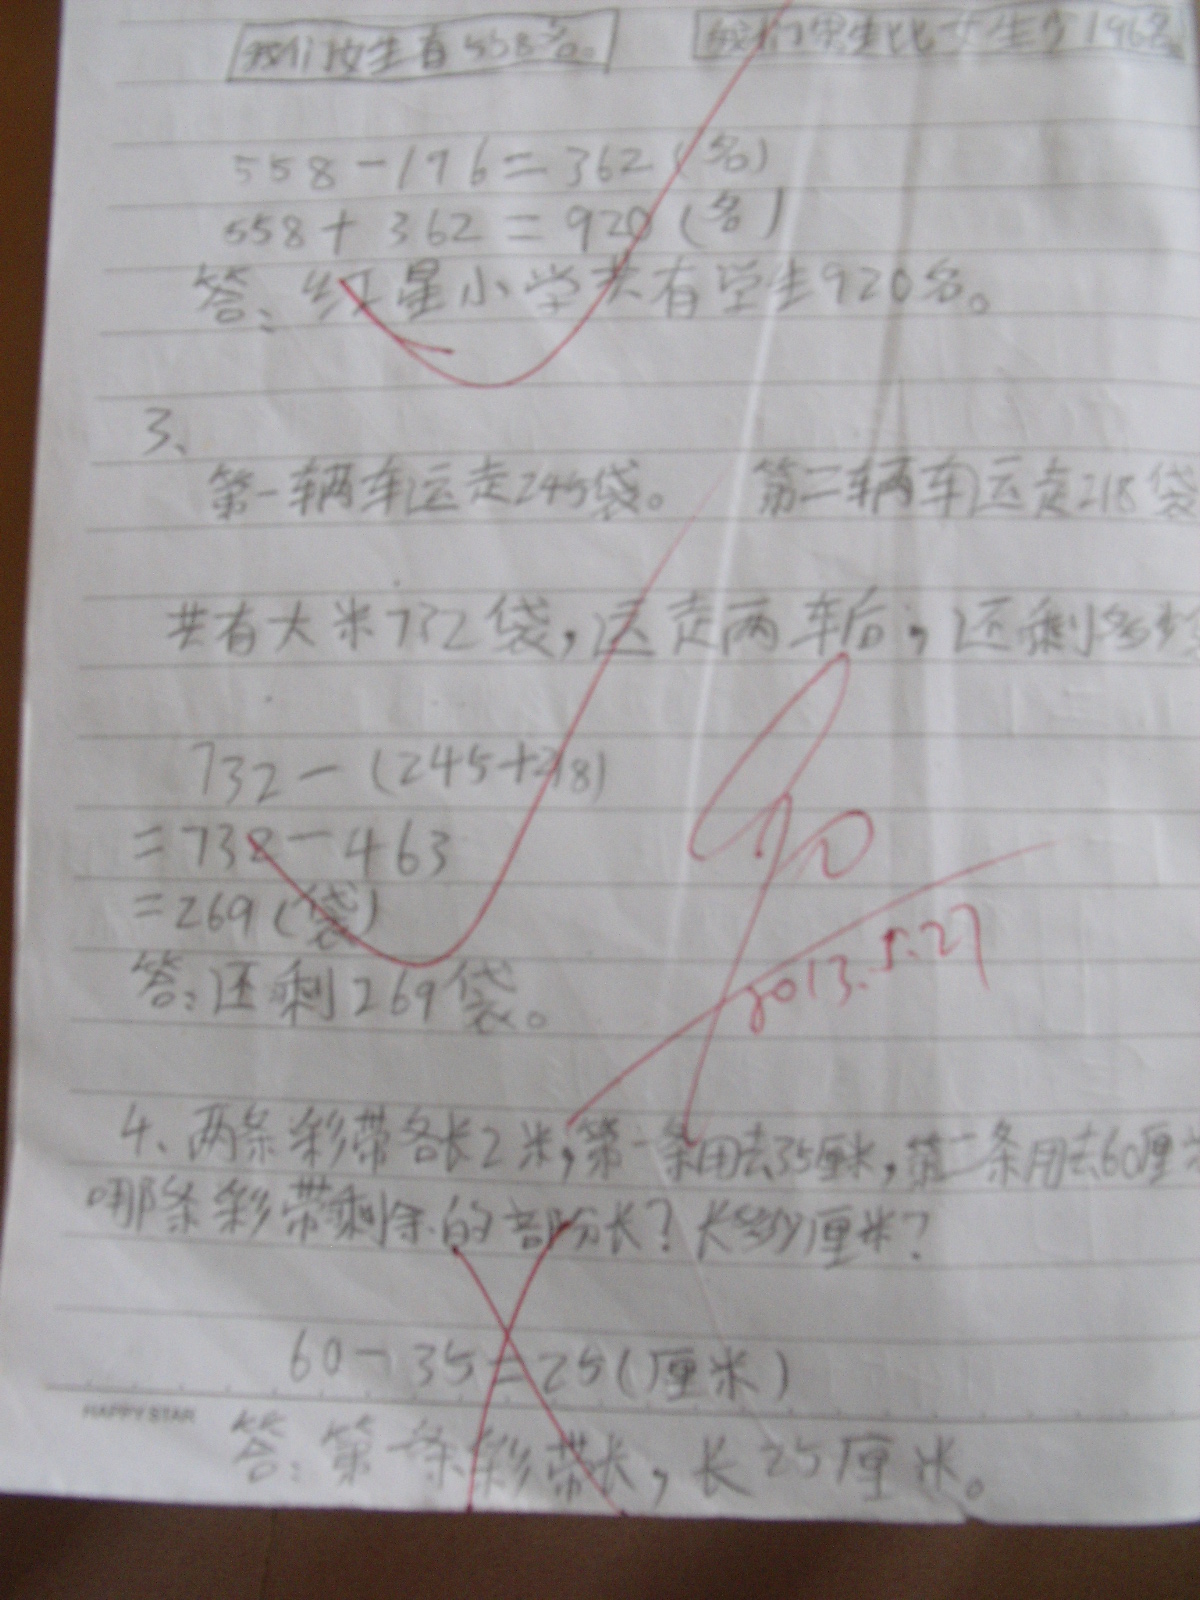 我们女生有558名。 我们男生比女生少196名。
558-196=362(名)
558+362=920(名)
答:红星小学共有学生920名。
3、
第一辆车运走245袋。 第二辆车运走218袋
共有大米732袋,运走两车后,还剩多少
732-(245+218)
=732-463
=269(袋)
答:还剩269袋。
90
2013.5.27
4、两条彩带各长2米,第一条用去35厘米,第二条用去60厘米
哪条彩带剩余的部份长?长多少厘米?
60-35=25(厘米)
HAPPY STAR
答:第一条彩带长,长25厘米。